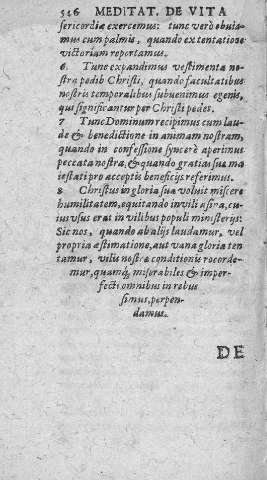 526 MEDITAT. DE VITA
sericordiæ exercemus: tunc verò obuia-
mus cum palmis, quando ex tentatione
victoriam reportamus.
6. Tunc expandimus vestimenta no-
stra pedib Christi, quando facultatibus
nostris temporalibus subuenimus egenis,
qui significantur per Christi pedes.
7 Tunc Dominum recipimus cum lau-
de & benedictione in animam nostram,
quando in confessione syncerè aperimus
peccata nostra, & quando gratias suæ ma
iestati pro acceptis beneficijs referimus.
8 Christus in gloria sua voluit miscere
humilitatem, equitando in vili asina, cu-
ius vsus erat in vilibus populi ministerijs:
Sic nos, quando ab alijs laudamur, vel
propria æstimatione, aut vana gloria ten
tamur, vilis nostræ conditionis recorde-
mur, quamq́; miserabiles & imper-
fecti omnibus in rebus
simus, perpen-
damus.
DE